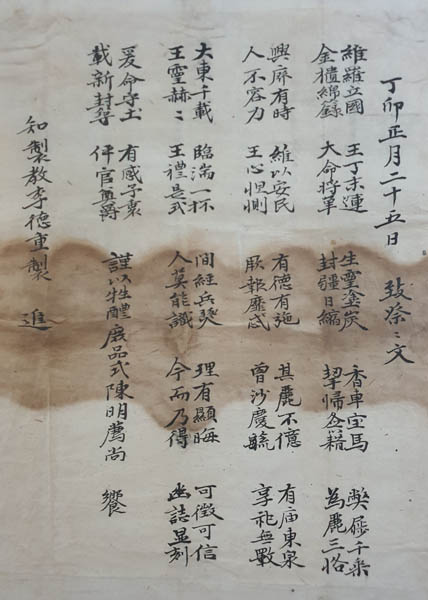 丁卯正月二十五日 致祭〻文
維羅立國 王丁末運 生靈塗炭 香車宝馬 弊屣千乘
金樻綿籙 大命將 封疆日縮 挈歸啚籍 為麗三恪
興廃有時 維以安民 有德有施 其麗不億 有庙東泉
人不容力 王心怛惻 厥報靡忒 曾沙慶毓 享祀無斁
大東千載 臨湍一杯 間經兵燹 理有顯晦 可徵可信
王靈赫〻 王禮是式 人莫能識 今而乃得 幽誌显刻
爰命守土 有感予衷
載新封塋 伻官奠爵
謹以牲醴庶品式陳明薦尚 饗
知製教李德重製 進